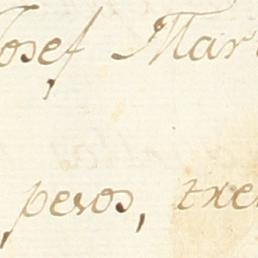 Josef Mar
pesos, tre